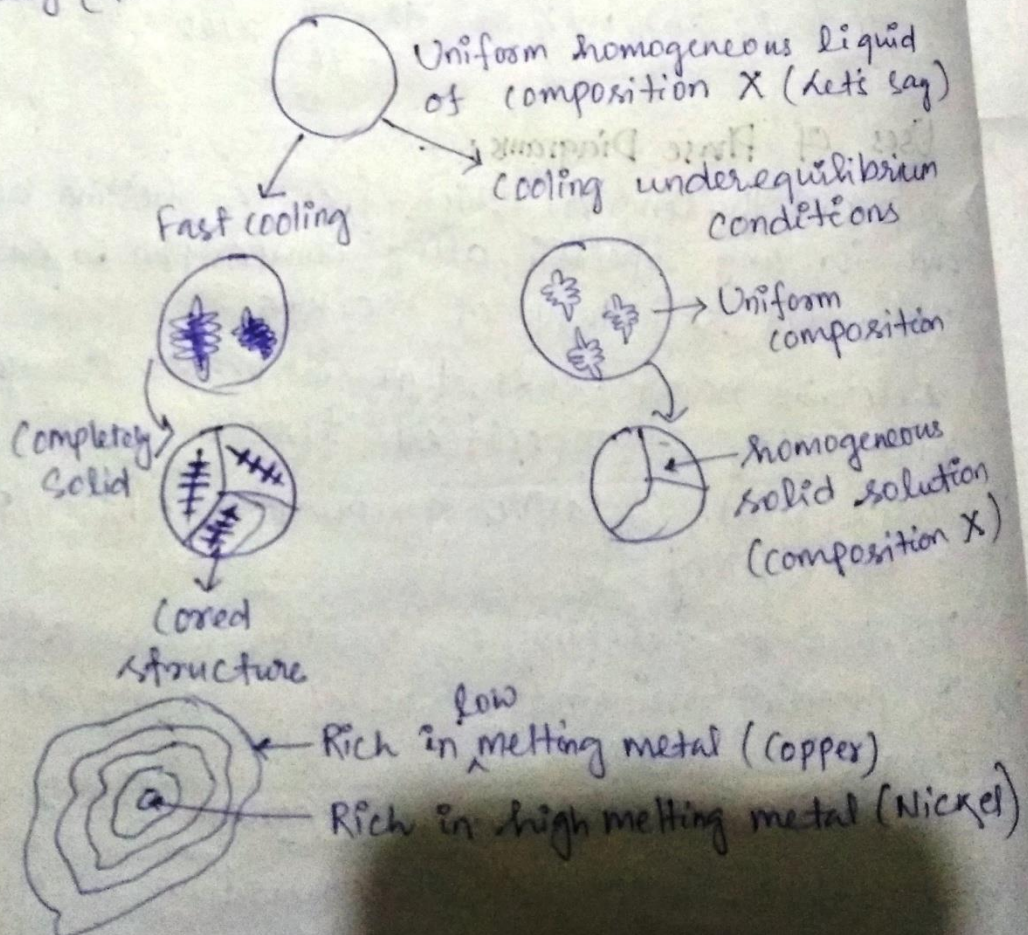 Uniform homogeneous liquid
of composition X (Let's say)
Cooling under equilibrium
conditions
Fast cooling
Uniform
composition
Completely
solid
homogeneous
solid solution
(composition X)
Cored
structure
low
Rich in melting metal (Copper)
Rich in high melting metal (Nickel)